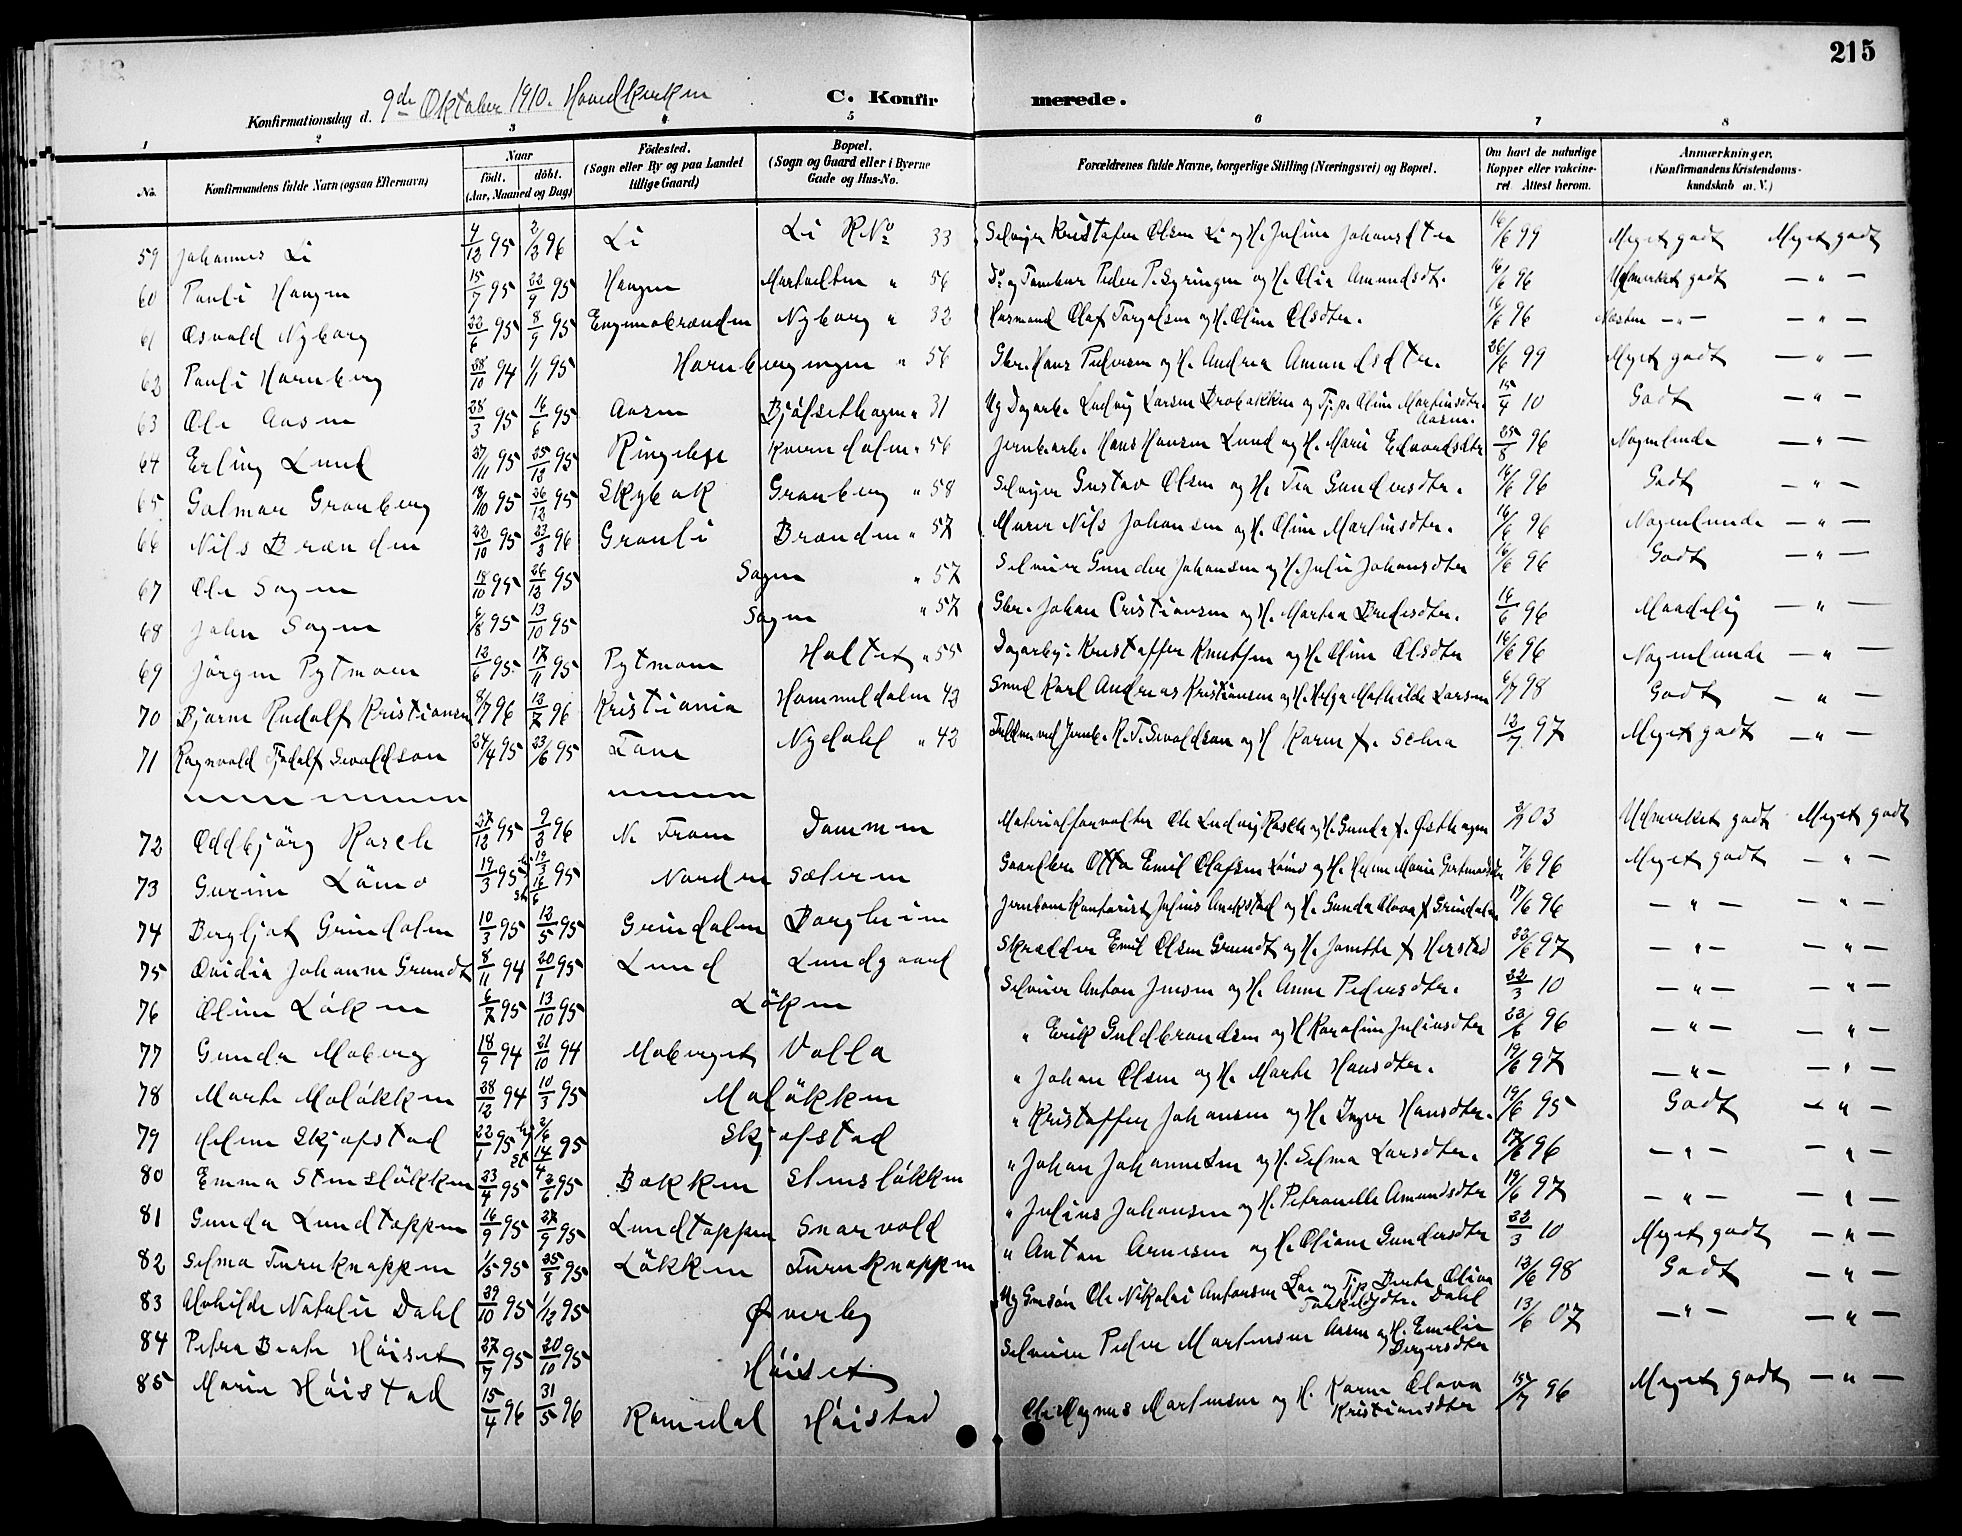 215
Konfirmationsdag d. 9de Oktober 1910. Hovedkirken C. Konfirmerede.
1 2 3 4 5 6 7 8
No. Konfirmandens fulde Navn (ogsaa Efternavn) Naar født. døbt. (Aar, Maaned og Dag) Fødested. (Sogn eller By og paa Landet tillige Gaard) Bopæl. (Sogn og Gaard eller i Byerne Gade og Hus-No. Forældrenes fulde Navne, borgerlige Stilling (Næringsvei) og Bopæl. Om havt de naturlige Kopper eller vakcineret. Attest herom. Anmærkninger. (Konfirmandens Kristendomskundskab m. V.)
59 Johannes Li 4/12 95 2/2 96 Li Li RNo 33 Selveier Kristofer Olsen Li og H. Juline Johansdter 16/6 99 Meget godt Meget godt
60 Pauli Haugen 15/7 95 22/9 95 Haugen 56 Do og Tambur Peder P. Syringen og H. Olia Amundsdt. 16/6 96 Udmerket godt — " —
61 Osvald Nyborg 22/6 95 8/9 95 Nyborg " 32 Husmand Olaf Torgalsen og H. Oline Olsdter. 16/6 96 Næsten — " — — " —
62 Pauli Hornberg 28/10 94 1/1 95 Hornbergengen " 56 Gbr. Hans Pedersen og H. Andrea Amundsdter. 26/6 99 Meget godt — " —
63 Ole Aasen 28/3 95 16/6 95 Aasen Bjölsethagen " 31 Ug Dagarb. Ludvig Larsen Brobakken og Tj.p. Oline Martinsdtr. Aasen. 15/4 10 Godt — " —
64 Erling Lund 27/11 95 25/12 95 Ringebu Kverndalen " 56 Jernb.arb. Hans Hansen Lund og H. Marie Edvardsdter 25/8 96 Nogenlunde — " —
65 Galmar Granberg 18/10 95 26/12 95 Skybak Granberg " 58 Selveier Gustav Olsen og H. Tea Gundersdter. 16/6 96 Godt — " —
66 Nils Brænden 22/10 95 23/3 96 Granli Brænden " 57 Murer Nils Johansen og H. Oline Martinsdter. 16/6 96 Nogenlunde — " —
67 Ole Sagen 18/10 95 26/12 95 Sagen " 57 Selveier Gunder Johansen og H. Julie Johansdter 16/6 96 Godt — " —
68 John Sagen 6/8 95 13/10 95 Sagen " 57 Gbr. Johan Cristiansen og H. Marthea Bredesdter. 16/6 96 Maadelig — " —
69 Jörgen Pytmoen 12/6 95 17/11 95 Pytmoen Haltet " 55 Dagarbj. Kristoffer Knutsen og H. Oline Olsdter 16/6 96 Nogenlunde — " —
70 Bjarne Rudolf Kristiansen 8/7 96 12/7 96 Kristiania Hammeldalen 42 Smed Karl Andreas Kristiansen og H. Helga Mathilde Larsen 6/7 98 Godt — " —
71 Ragnvald Tjodolf Sivaldson 24/4 95 23/6 95 Nydahl " 42 ved Jernb. R. T. Sivaldson og H. Karen f. Selna 12/7 97 Meget godt — " —
72 Oddbjörg Rasch 27/12 95 2/3 96 N. Fron Dammen Materialforvalter Ole Ludvig Rasch og H. Gunda f. Østhagen 3/9 03 Udmerket godt Meget godt
73 Gurine Lömo 19/3 95 19/3 16/6 95 Nordre Sæteren Gaardbr. Otto Emil Olafsen Lömo og H. Marie 7/6 96 Meget godt — " —
74 Bergljot Grindalen 10/3 95 12/5 95 Grindalen Borgheim Jernbane kontorist Julius og H. Gunda Olava f Grindalen 17/6 96 — " — — " —
75 Ovidia Johanne Grundt 8/11 94 20/1 95 Lund Lundgaard Skrædder Emil Olsen Grundt og H. Janette f Herstad 22/6 97 — " — — " —
76 Oline Löken 6/7 95 13/10 95 Löken Selveier Anton Jensen og H. Anne Pedersdter. 22/3 10 — " — — " —
77 Gunda Moberg 18/9 94 21/10 94 Moberget Volla " Erik Guldbrandsen og H Karoline Juliusdter 22/6 96 — " — — " —
78 Marte Molökken 28/12 94 10/3 95 Molökken " Johan Olsen og H. Marte Hansdter. 19/6 97 — " — — " —
79 Helene Skjefstad 22/1 95 2/6 14/4 95 Skjefstad " Kristoffer Johansen og H. Inger Hansdter. 19/6 95 Godt — " —
80 Emma Stenslökken 23/4 95 2/6 95 Bakken Stenslökken " Johan Johannesen og H. Selma Larsdter. 17/6 96 — " — — " —
81 Gunda Lundtoppen 16/9 95 27/9 95 Lundtoppen Snarvold " Julius Johansen og H. Petronelle Amundsdter 19/6 97 — " — — " —
82 Selma Furuknappen 1/5 95 25/8 95 Lökken Furuknappen " Anton Arnesen og H. Oliane Gundersdter 22/3 10 Meget godt — " —
83 Natalie Dahl 29/10 95 1/12 95 Øverby Ug Gmsön Ole Nikolai Antonsen og Tjp. Berte Oline Torkildsdtr. Dahl 13/6 98 Godt — " —
84 Petra Beate Höiset 27/7 95 20/10 95 Höiset Selveier Peder Martinsen Aasen og H. Emelie Birgersdter 13/6 07 — " — — " —
85 Marie Höistad 15/4 96 31/5 96 Romedal Höistad Ole Magnus Martinsen og H. Karen Olava Kristiansdter 15/7 96 Meget godt — " —